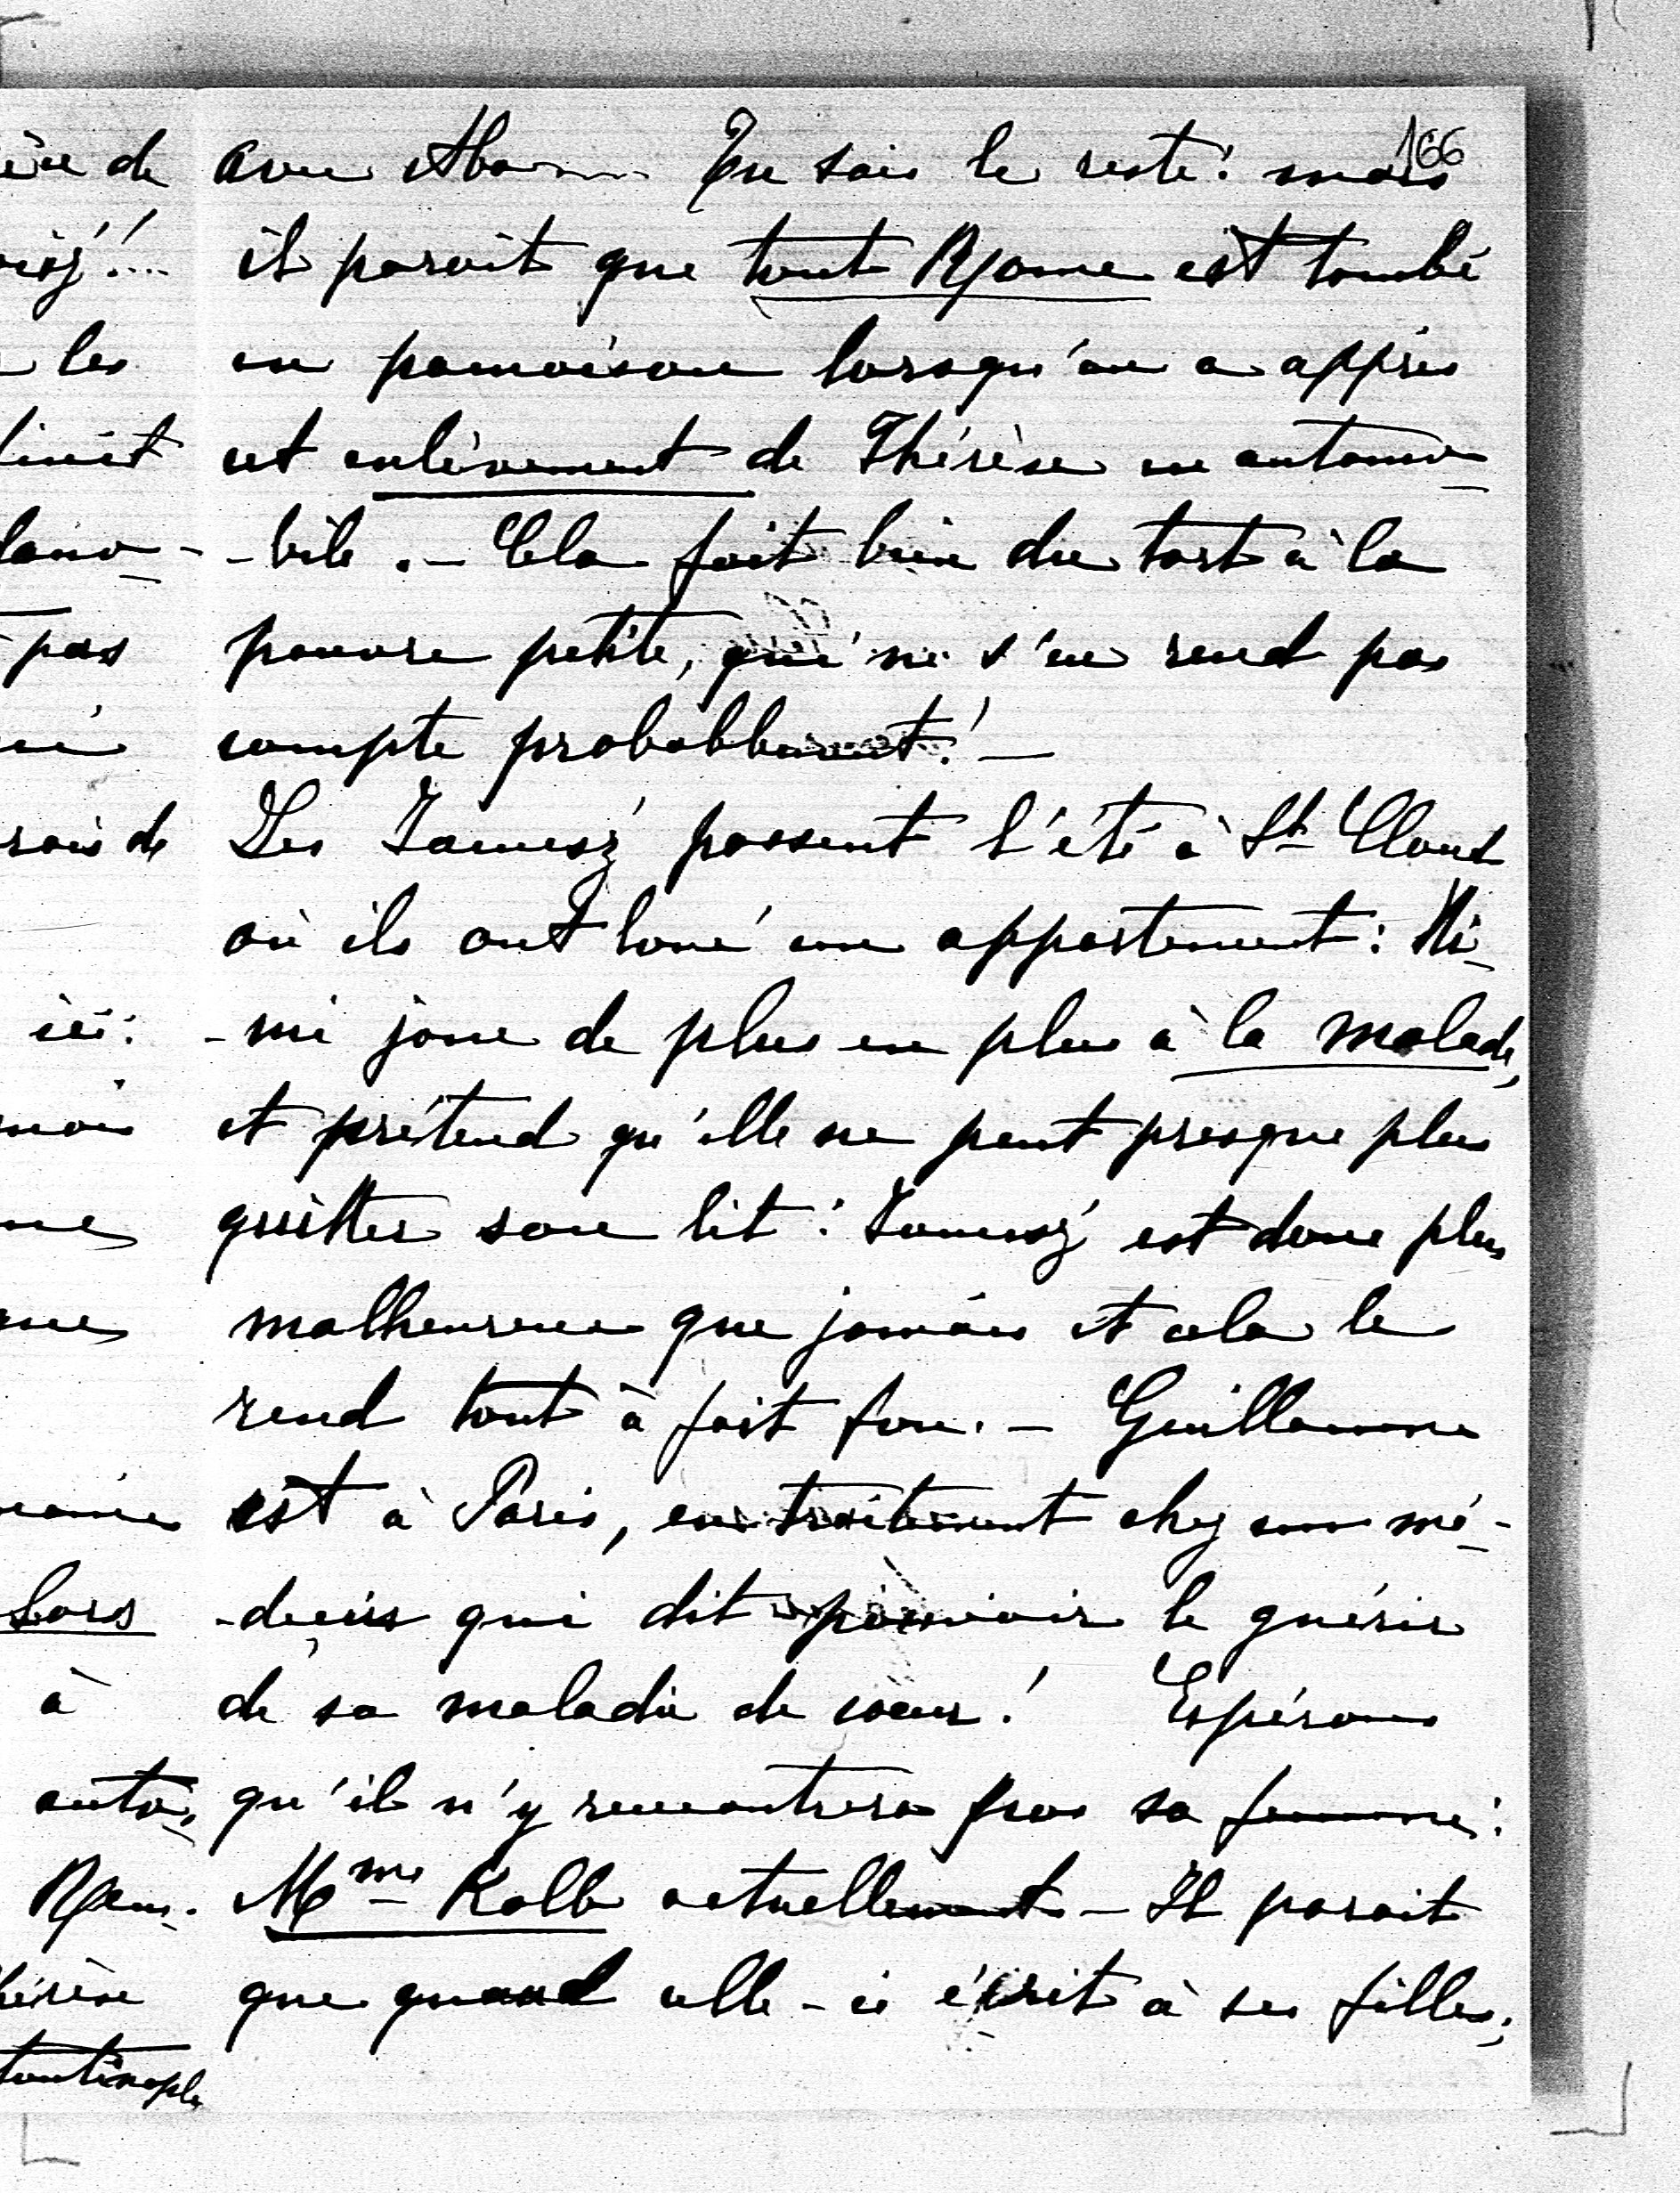 166
avec Aba..... Tu sais le reste: mais
il parait que tout Rpame est tombé
en pamoison lorsqu'on a appris
cet enlèvement de Thérèse en automo-
-bile. — Cela fait bien du tort à la
pauvre petite, qui ne s'en rend pas
compte probablement! —
Les Jameský passent l'été à St Cloud
où ils ont loué un appartement: Mi-
-mi joue de plus en plus à la malade,
et prétend qu'elle ne peut presque plus
quitter son lit: Jameský est donc plus
malheureux que jamais et cela le
rend tout à fait fou. — Guillaume
est à Paris, en traitement chez un mé-
-decin qui dit pouvoir le guérir
de sa maladie de cœur! Espérons
qu'il n'y rencontrera pas sa femme:
Mme Kolb actuellement — Il parait
que quand celle-ci écrit à ses filles,
de
les
pas
ici:
à
auto-